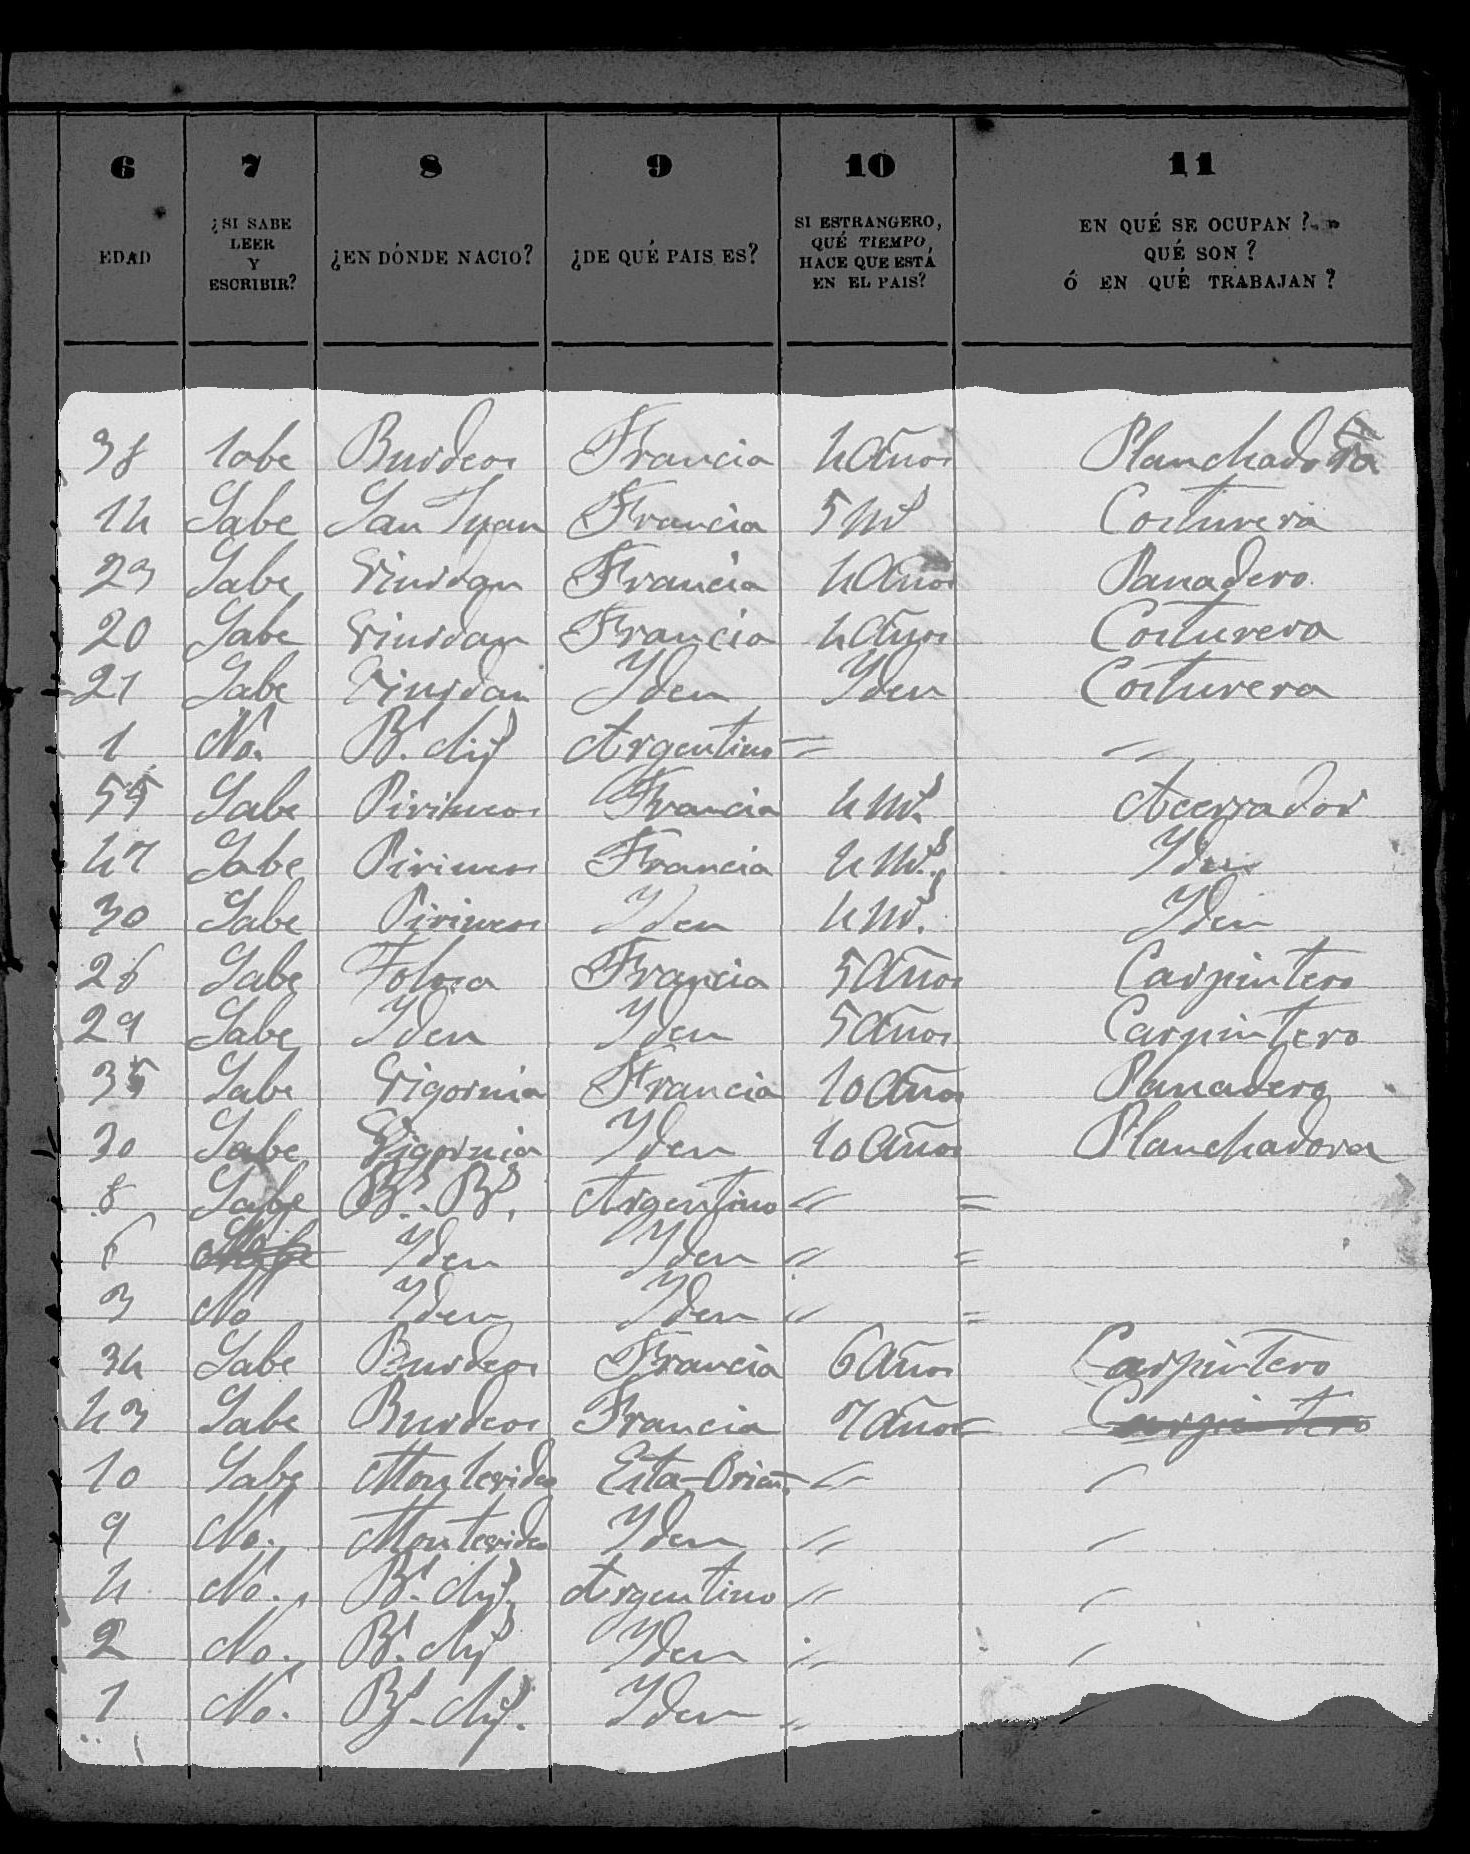 6 7 8 9 10 11
EDAD ¿SI SABE LEER Y ESCRIBIR? ¿EN DÓNDE NACIO? ¿DE QUÉ PAIS ES? SI ESTRANGERO, QUÉ TIEMPO, HACE QUE ESTÁ EN EL PAIS? EN QUÉ SE OCUPAN? QUÉ SON? Ó EN QUÉ TRABAJAN?
38 Sabe Burdeos Francia 4 Años Planchadora
14 Sabe San Juan Francia 5 Ms Costurera
23 Sabe Francia 4 Años Panadero
20 Sabe Francia 4 Años Costurera
21 Sabe Yden Yden Costurera
1 No. Bs. Ays Argentino = "
55 Sabe Pirineos Francia 4 Ms. Acerrador
47 Sabe Pirineos Francia 4 Ms. Yden
30 Sabe Pirineos Yden 4 Ms. Yden
26 Sabe Tolosa Francia 5 Años Carpintero
29 Sabe Yden Yden 5 Años Carpintero
35 Sabe Francia 10 Años Panadero
30 Sabe Yden 10 Años Planchadora
8 Sabe Argentino " =
6 Yden Yden " =
3 No Yden Yden " =
34 Sabe Burdeos Francia 6 Años Carpintero
43 Sabe Burdeos Francia 7 Años Carpintero
10 Sabe Montevideo Esta-Orien. "
9 No. Montevideo Yden "
4 No. Bs. Ays. Argentino "
2 No. Bs. Ays Yden "
1 No. Bs. Ays. Yden "